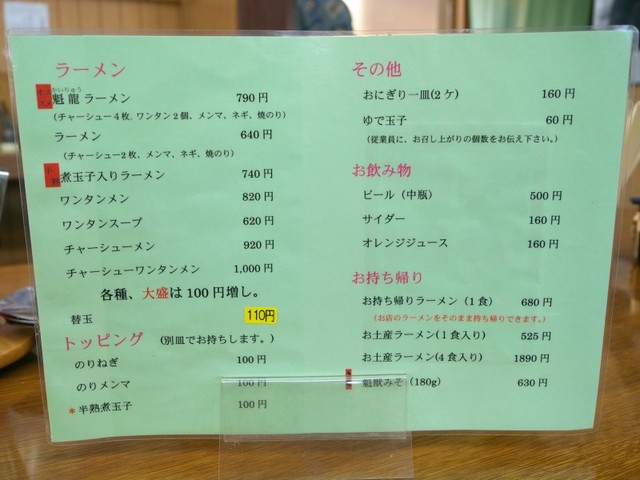 ラーメン
かいりゅう
魁龍ラーメン 790円
(チャーシュー4枚、ワンタン2個、メンマ、ネギ、焼のり)
ラーメン 640円
(チャーシュー2枚、メンマ、ネギ、焼のり)
煮玉子入りラーメン 740円
ワンタンメン 820円
ワンタンスープ 620円
チャーシューメン 920円
チャーシューワンタンメン 1,000円
各種、大盛は100円増し。
替玉 110円
トッピング (別皿でお持ちします。)
のりねぎ 100円
のりメンマ 100円
*半熟煮玉子 100円
その他
おにぎり一皿(2ケ) 160円
ゆで玉子 60円
(従業員に、お召し上がりの個数をお伝え下さい。)
お飲み物
ビール(中瓶) 500円
サイダー 160円
オレンジジュース 160円
お持ち帰り
お持ち帰りラーメン(1食) 680円
(お店のラーメンをそのまま持ち帰りできます。)
お土産ラーメン(1食入り) 525円
お土産ラーメン(4食入り) 1890円
魁獣みそ(180g) 630円